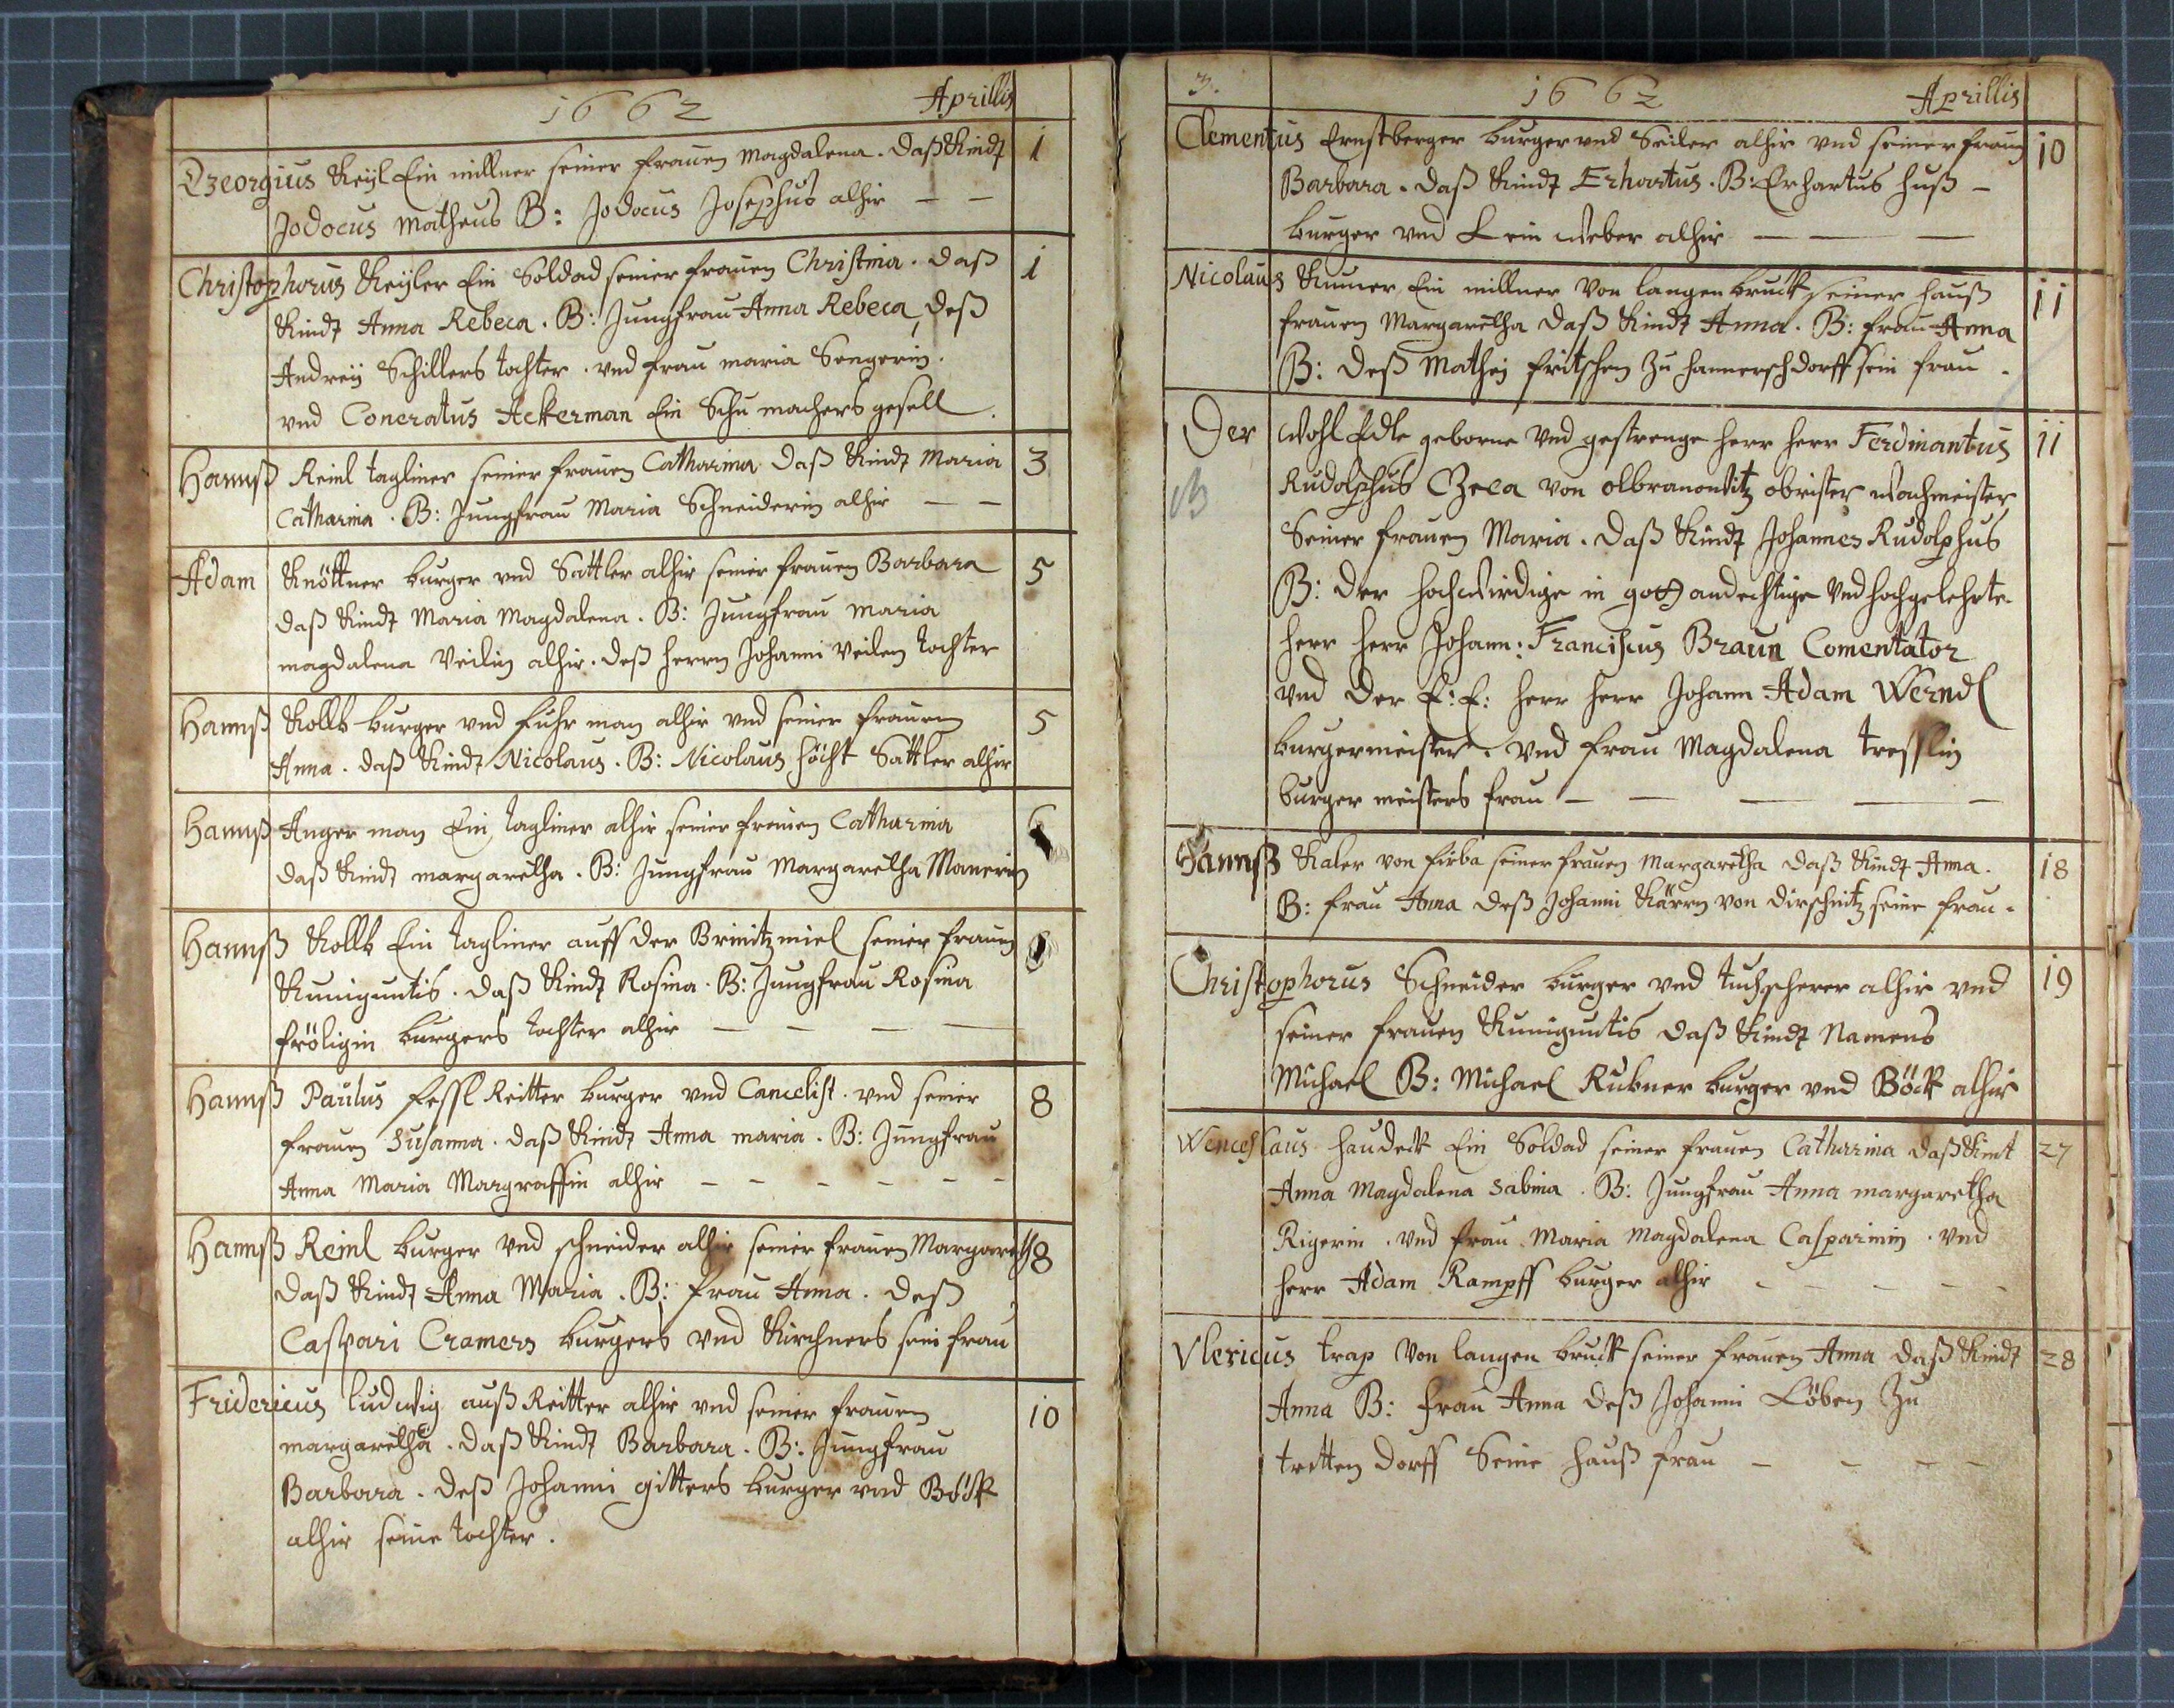 1662 Aprillis
Gzeorgius Keyl Ein millner seiner frauen Magdalena. daß Kindt 1
Jodocus Matheus B: Jodocus Josephus alhir — —
Christophorus Keyler Ein Soldad seiner frauen Christina. daß 1
Kindt Anna Rebeca. B: Jungfrau Anna Rebeca, deß
Andreÿ Schillers tochter. vnd frau maria Sengerin.
vnd Coneratus Ackerman Ein Schu machers gesell.
Hannß Reinl tagliner seiner frauen Catharina daß Kindt Maria 3
Catharina. B: Jungfrau Maria Schneiderin alhir — —
Adam Knöttner burger vnd Sattler alhir seiner frauen Barbara 5
daß Kindt Maria Magdalena. B: Jungfrau Maria
magdalena Veilin alhir. deß herrn Johanni Veilen tochter
Hannß Kollb burger vnd fuhr man alhir vnd seiner frauen 5
Anna. daß Kindt Nicolaus. B: Nicolaus höcht Sattler alhir
Hannß Anger man Ein tagliner alhir seiner freuen Catharina
daß Kindt margaretha. B: Jungfrau Margaretha Manerin
Hannß Kollb Ein tagliner auff der Brinitzmiel seiner frauen
Kuniguntis. daß Kindt Rosina. B: Jungfrau Rosina
fröligin burgers tochter alhir — — — —
Hannß Paulus Esssl Reitter burger vnd Cancelist. vnd seiner 8
frauen Susanna. daß Kindt Anna maria. B: Jungfrau
Anna Maria Margraffin alhir – – – – – –
Hannß Reinl burger vnd schneider alhir seiner frauen Margareth 8
daß Kindt Anna Maria. B: frau Anna. deß
Caspari Cramers burgers vnd Kirchners sein frau
Fridericus Ludwig auß Reitter alhir vnd seiner frauen 10
margaretha. daß Kindt Barbara. B: Jungfrau
Barbara. deß Johanni gitters burger vnd Böck
alhir seine tochter.
3. 1662 Aprillis
Clementus Ernstberger burger vnd Seiler alhir vnd seiner frauen 10
Barbara. daß Kindt Erhartus. B: Erhartus huß –
burger vnd Lein weber alhir — — —
Nicolaus Kumer Ein millner Von langen bruck seiner hauß 11
frauen Margaretha daß Kindt Anna. B: frau Anna
B: deß Mathej fritschen Zu hannerschdorff sein frau.
Der wohl Edle geborne Vnd gestrenge herr herr Ferdinantus 11
Rudolphus Czeca von olbranowitz obrister wachmeister
Seiner frauen Maria. daß Kindt Johannes Rudolphus
B: der hochwirdige in gott andechtige Vnd hochgelehrte
herr herr Johann: Franciscus Braun Comentator
vnd der E: E: herr herr Johann Adam Werndl
burgermeister. vnd frau Magdalena tresslin
burger meisters frau — — — — —
Hannß Kaler von firba seiner frauen Margaretha daß Kindt Anna. 18
B: frau Anna deß Johanni Kärrn von dirschnitz seine frau.
Christophorus Schneider burger vnd tuchscherer alhir vnd 19
seiner frauen Kuniguntis daß Kindt Namens
Michael B: Michael Rubner burger vnd Böck alhir
Wenceslaus haudeck Ein Soldad seiner frauen Catharina daß Kint 27
Anna Magdalena Sabina. B: Jungfrau Anna margaretha
Rigerin. vnd frau Maria Magdalena Casparinin. vnd
herr Adam Rampff burger alhir – – – – –
Vlericus trap Von langen bruck seiner frauen Anna daß Kindt 28
Anna B: frau Anna deß Johanni Löben Zu
tritten dorff Seine hauß frau – – – –